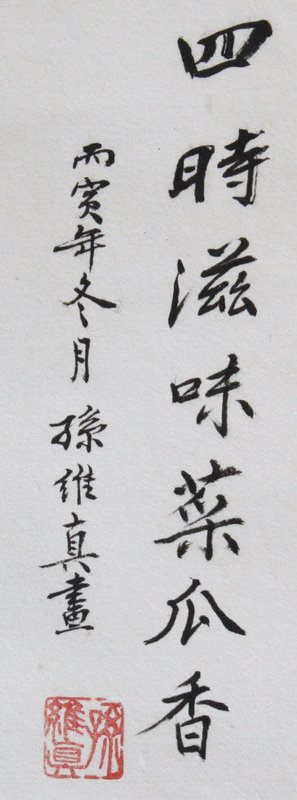 四時滋味菜瓜香
丙寅年冬月 孫維真畫
孫維真